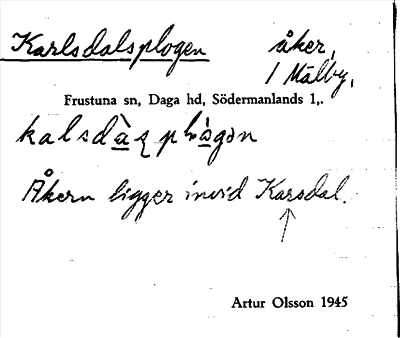 Karlsdalsplogen åker,
1 Mälby,
Frustuna sn, Daga hd, Södermanlands l,.
Åkern ligger invid Karsdal.
Artur Olsson 1945